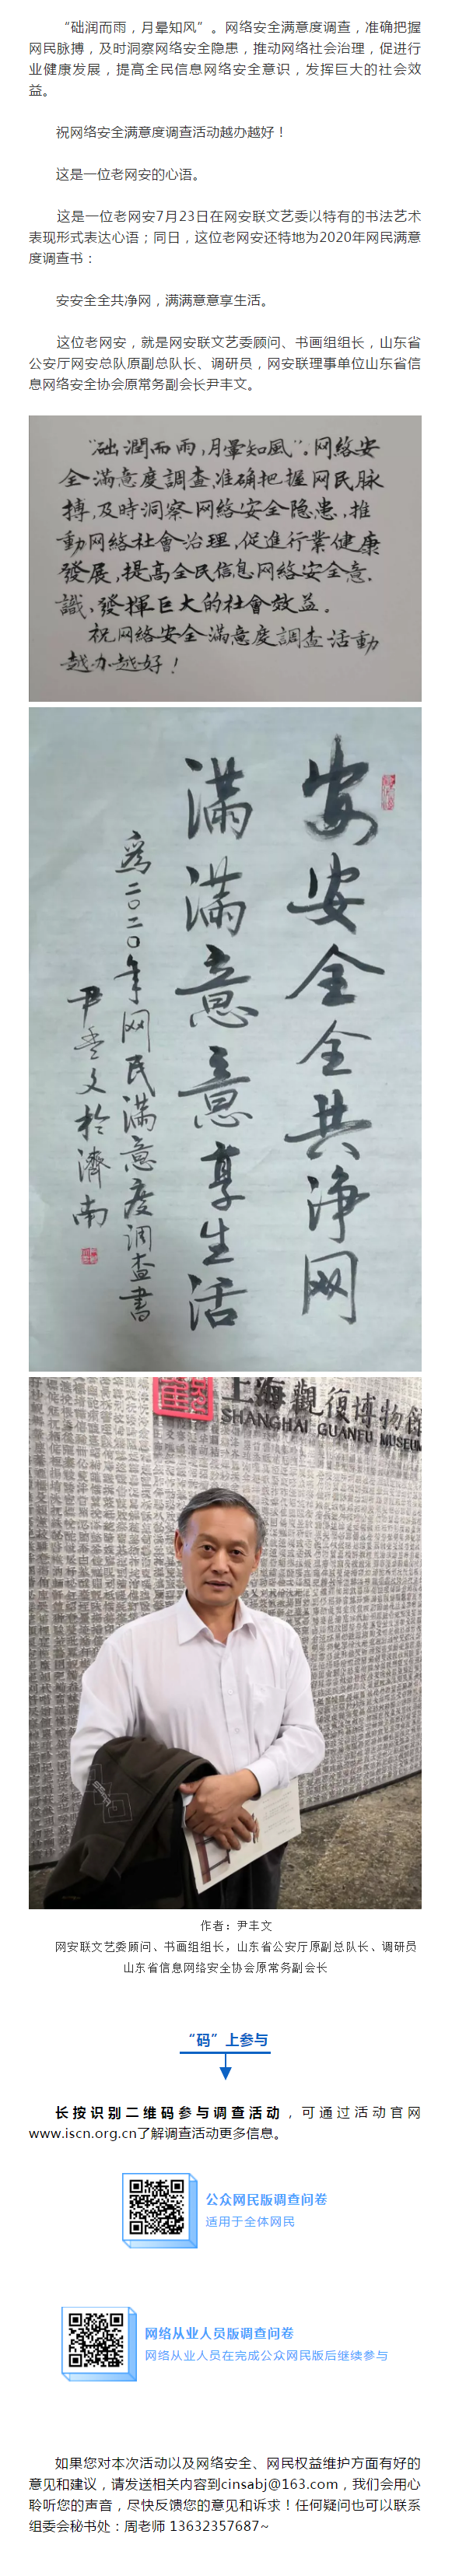 “础润而雨，月晕知风”。网络安全满意度调查，准确把握
网民脉搏，及时洞察网络安全隐患，推动网络社会治理，促进行
业健康发展，提高全民信息网络安全意识，发挥巨大的社会效
益。
祝网络安全满意度调查活动越办越好！
这是一位老网安的心语。
这是一位老网安7月23日在网安联文艺委以特有的书法艺术
表现形式表达心语；同日，这位老网安还特地为2020年网民满意
度调查书：
安安全全共净网，满满意意享生活。
这位老网安，就是网安联文艺委顾问、书画组组长，山东省
公安厅网安总队原副总队长、调研员，网安联理事单位山东省信
息网络安全协会原常务副会长尹丰文。
“础潤而雨，月暈知風”。网络安
全满意度調查，准确把握网民脉
搏，及時洞察网络安全隐患，推
動网络社會治理，促進行業健康
發展，提高全民信息网络安全意
識、發揮巨大的社會效益。
祝网络安全满意度調查活動
越办越好！
安安全全共净网
滿滿意意享生活
爲二〇二〇年网民滿意度调查書
尹丰文於濟南
上海觀復博物館
SHANGHAI GUANFU MUSEUM
作者：尹丰文
网安联文艺委顾问、书画组组长，山东省公安厅原副总队长、调研员
山东省信息网络安全协会原常务副会长
“码”上参与
长按识别二维码参与调查活动，可通过活动官网
www.iscn.org.cn了解调查活动更多信息。
公众网民版调查问卷
适用于全体网民
网络从业人员版调查问卷
网络从业人员在完成公众网民版后继续参与
如果您对本次活动以及网络安全、网民权益维护方面有好的
意见和建议，请发送相关内容到cinsabj@163.com，我们会用心
聆听您的声音，尽快反馈您的意见和诉求！任何疑问也可以联系
组委会秘书处：周老师 13632357687~